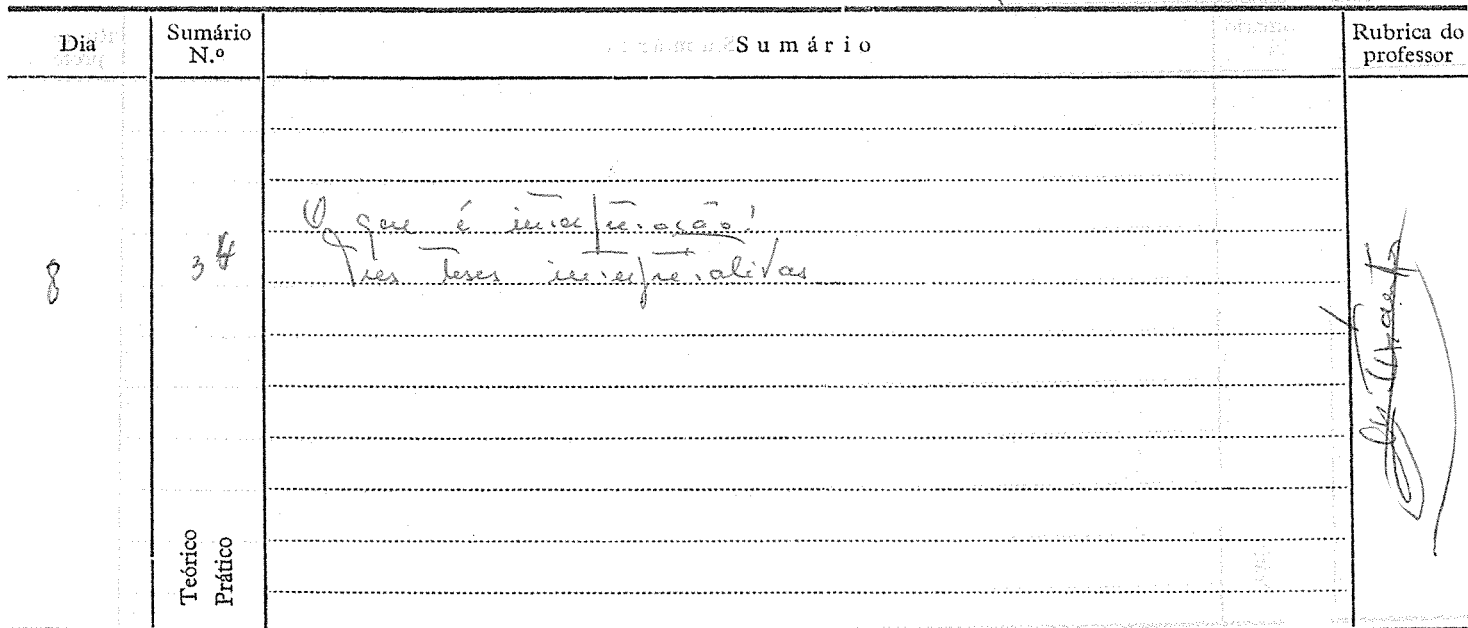 Dia
Sumário N.º
Sumário
Rubrica do professor
8
34
O que é interpretação?
Três teses interpretativas
Teórico
Prático